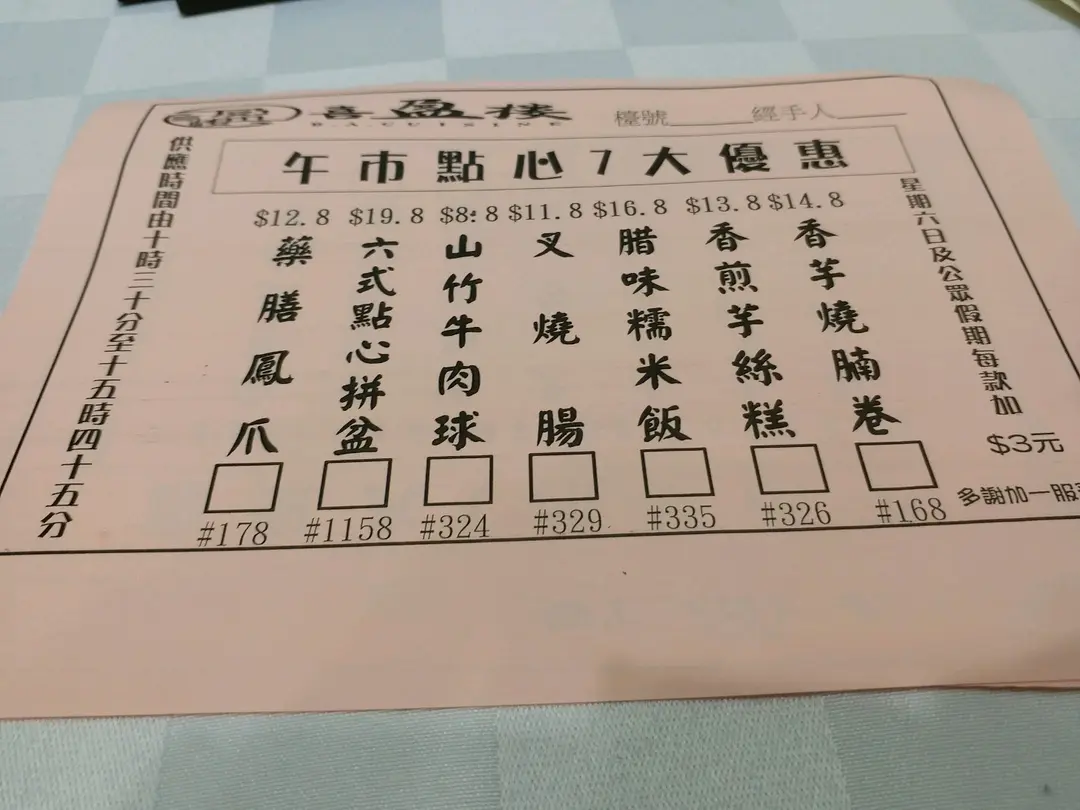 喜盈楼
BACUISINE
檯號______ 經手人______
午市點心7大優惠
供應時間由十時三十分至十五時四十五分
$12.8 $19.8 $8.8 $11.8 $16.8 $13.8 $14.8
藥膳鳳爪
六式點心拼盆
山竹牛肉球
叉燒腸
腊味糯米飯
香煎芋絲糕
香芋燒腩卷
#178 #1158 #324 #329 #335 #326 #168
星期六日及公眾假期每款加
$3元
多謝加一服